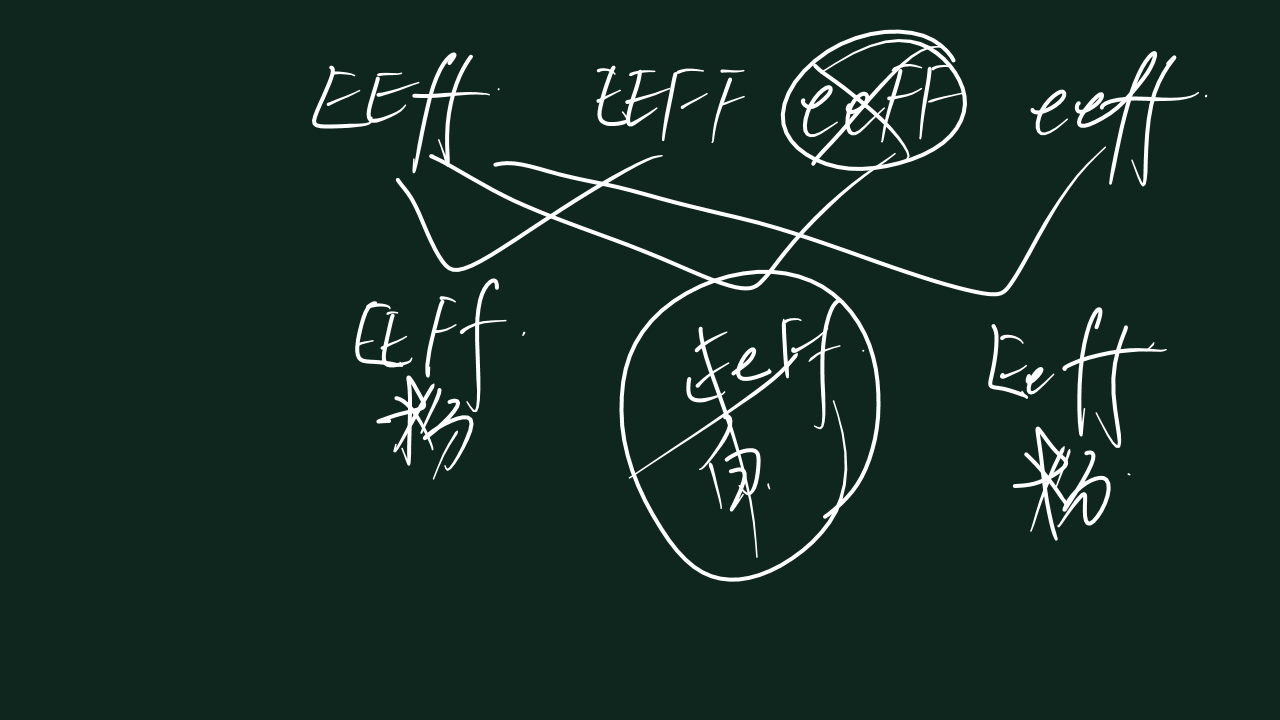 EEff EEFF eeFF eeff
EEFf EeFf Eeff
粉 白 粉